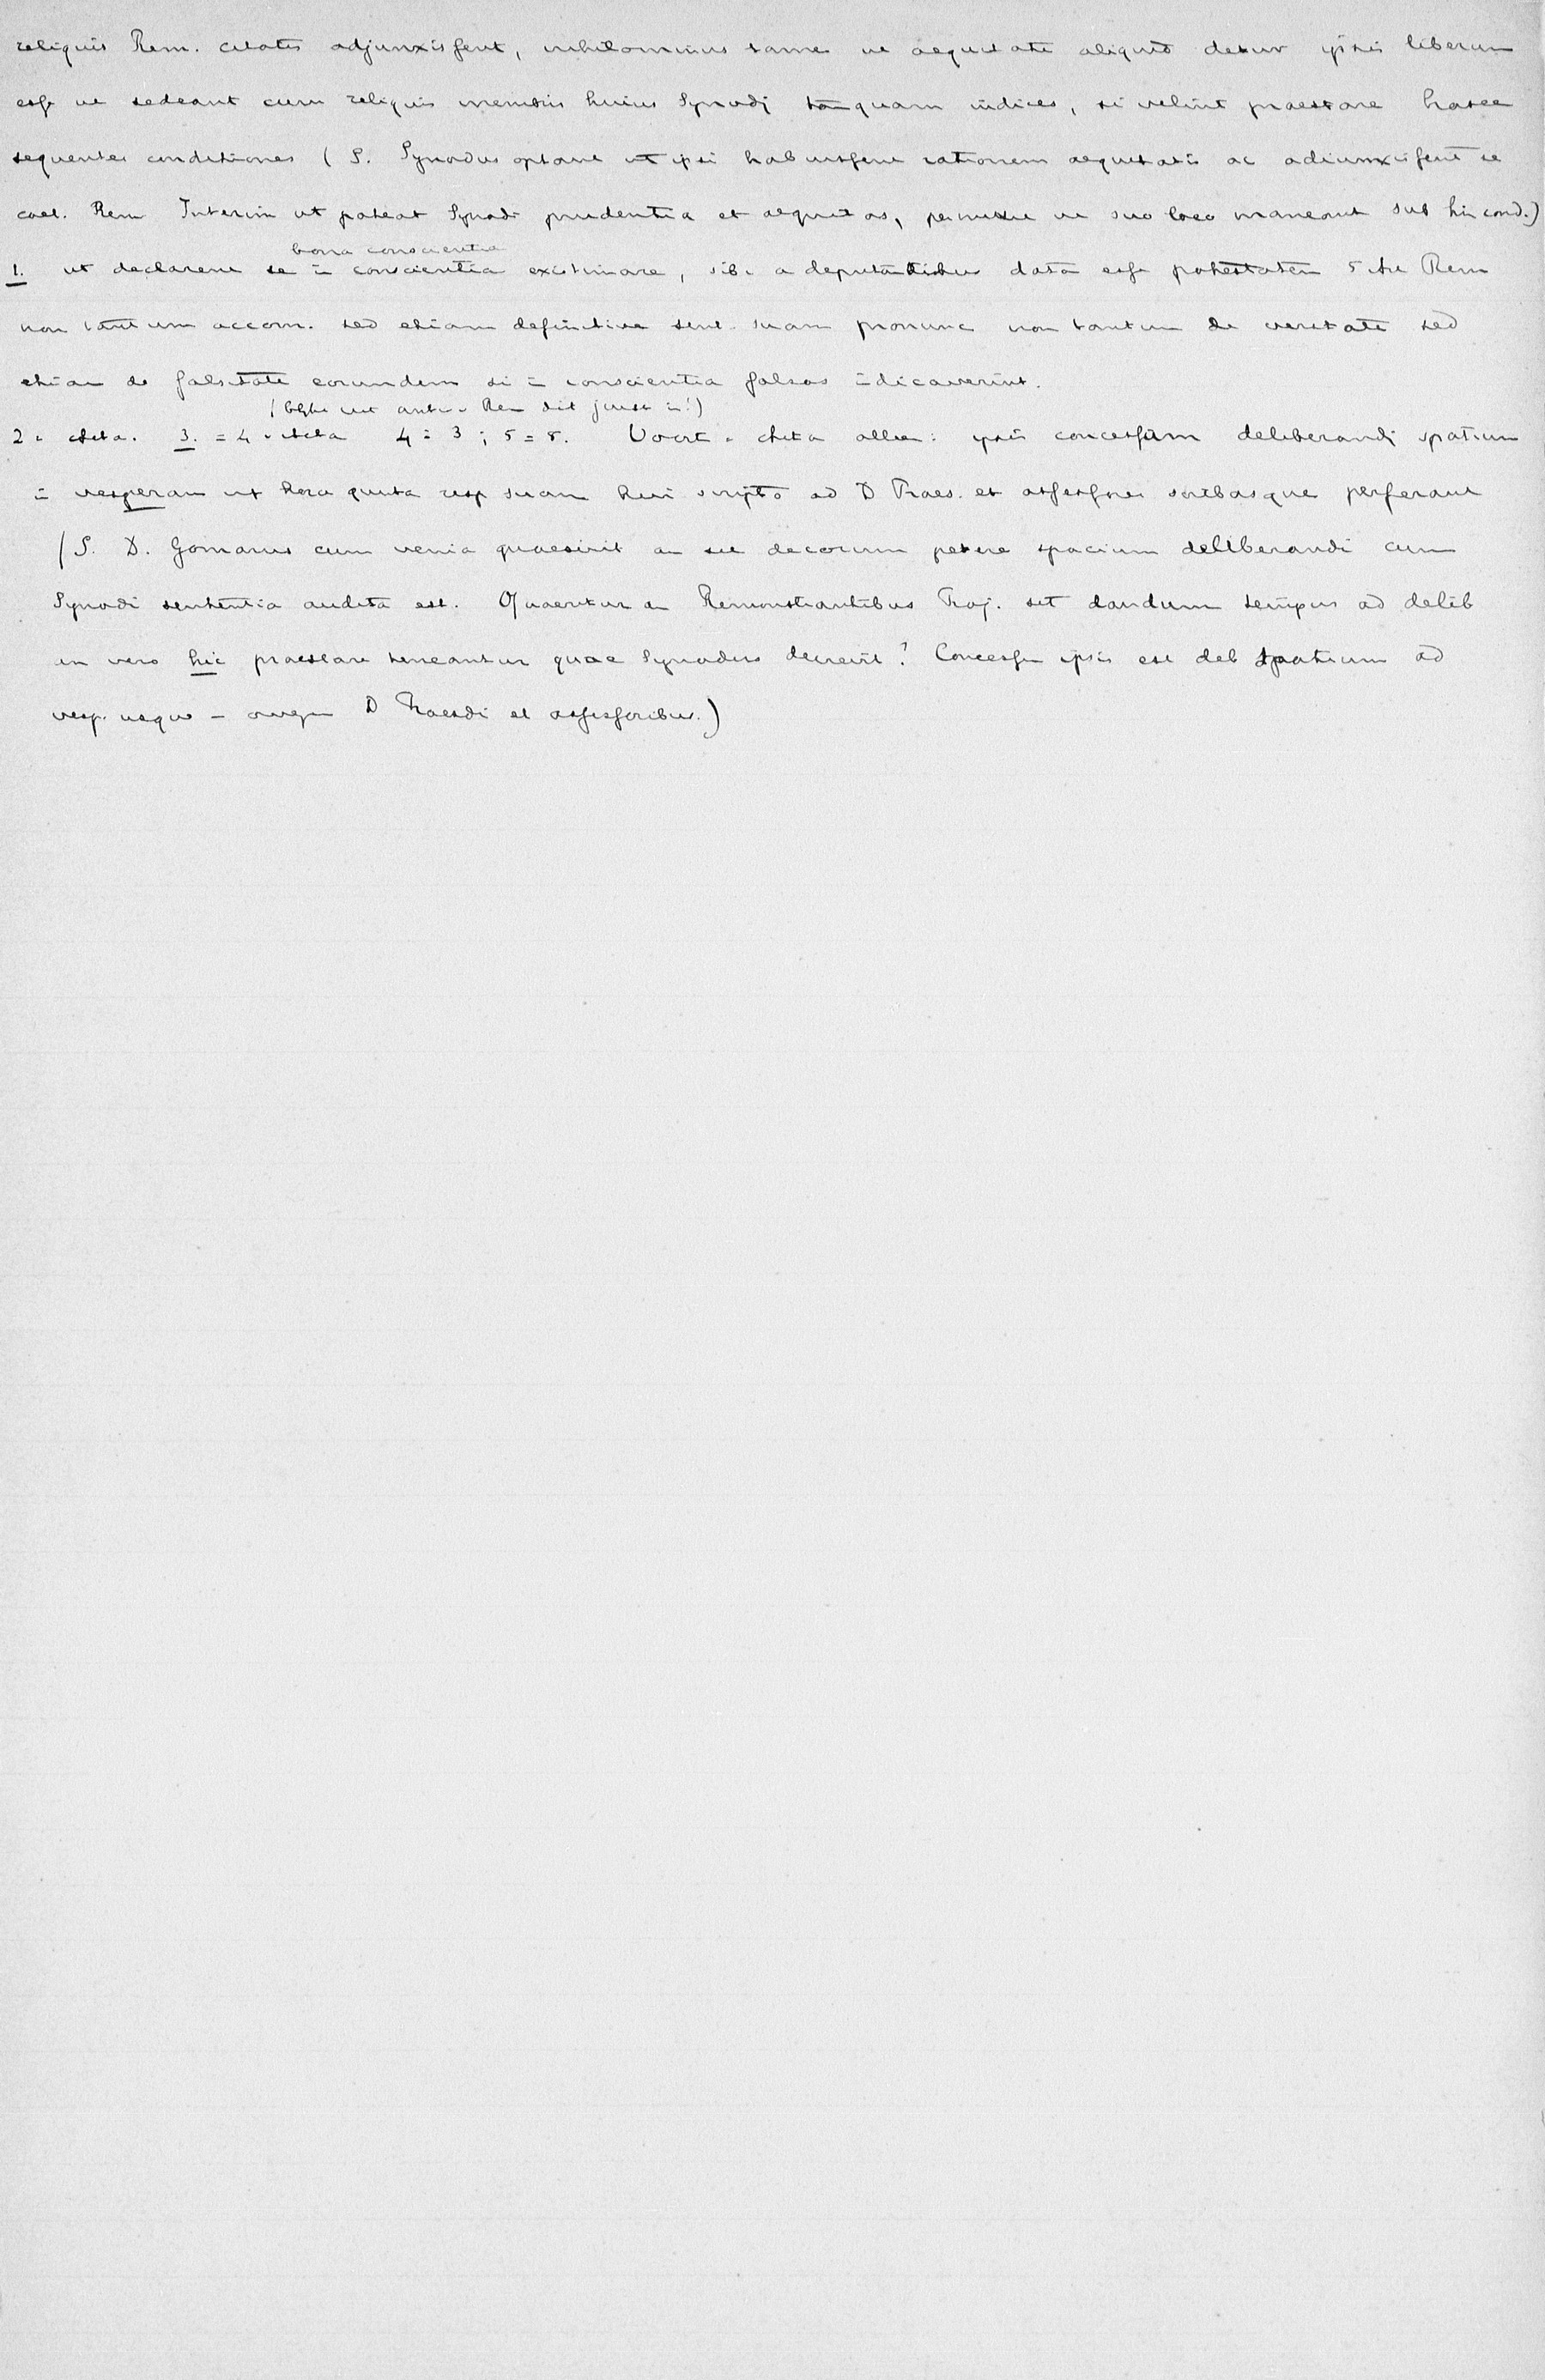 reliquis Rem. citatis adjunxissent, nihilominus tamen ut aequitati aliquid detur ipsis liberum
esse ut sedeant cum reliquis membris huius Synodj tanquam iudices, si velint praestare hasce
sequentes conditiones ( S. Synodus optavit ut ipsi habuissent rationem aequitatis ac adiunxissent se
caet. Rem Interim ut pateat Synodi prudentia et aequitas, permittit ut suo loco maneant sub his cond.)
bona conscientia
1. ut declarent se in conscientia existimare, sibi a deputantibus data esse potestatem Rem
non tantum accom. sed etiam definitive sent. suam pronunc non tantum de veritate sed
etiam de falsitate eorundem si in conscientia falsos iudicaverint.
dit juist is!)
2 = Acta. 3. = 4 Acta 4 = 3 ; 5 = 5. Voort Acta alleen: ipsis concessum deliberandj spatium
in vesperam ut hora quinta resp suam scripto ad D Praes. et assessores scribasque perferant
( S. D. Gomarus cum venia quaesivit an sit decorum petere spacium deliberandi cum
Synodi sententia audita est. Quaeritur an Remonstrantibus Traj. sit dandum tempus ad delib
an vero hic praestare teneantur quae Synodus decrevit? Concessum ipsis est deb spatium ad
vesp. usque D Praesdi et assessoribus.)